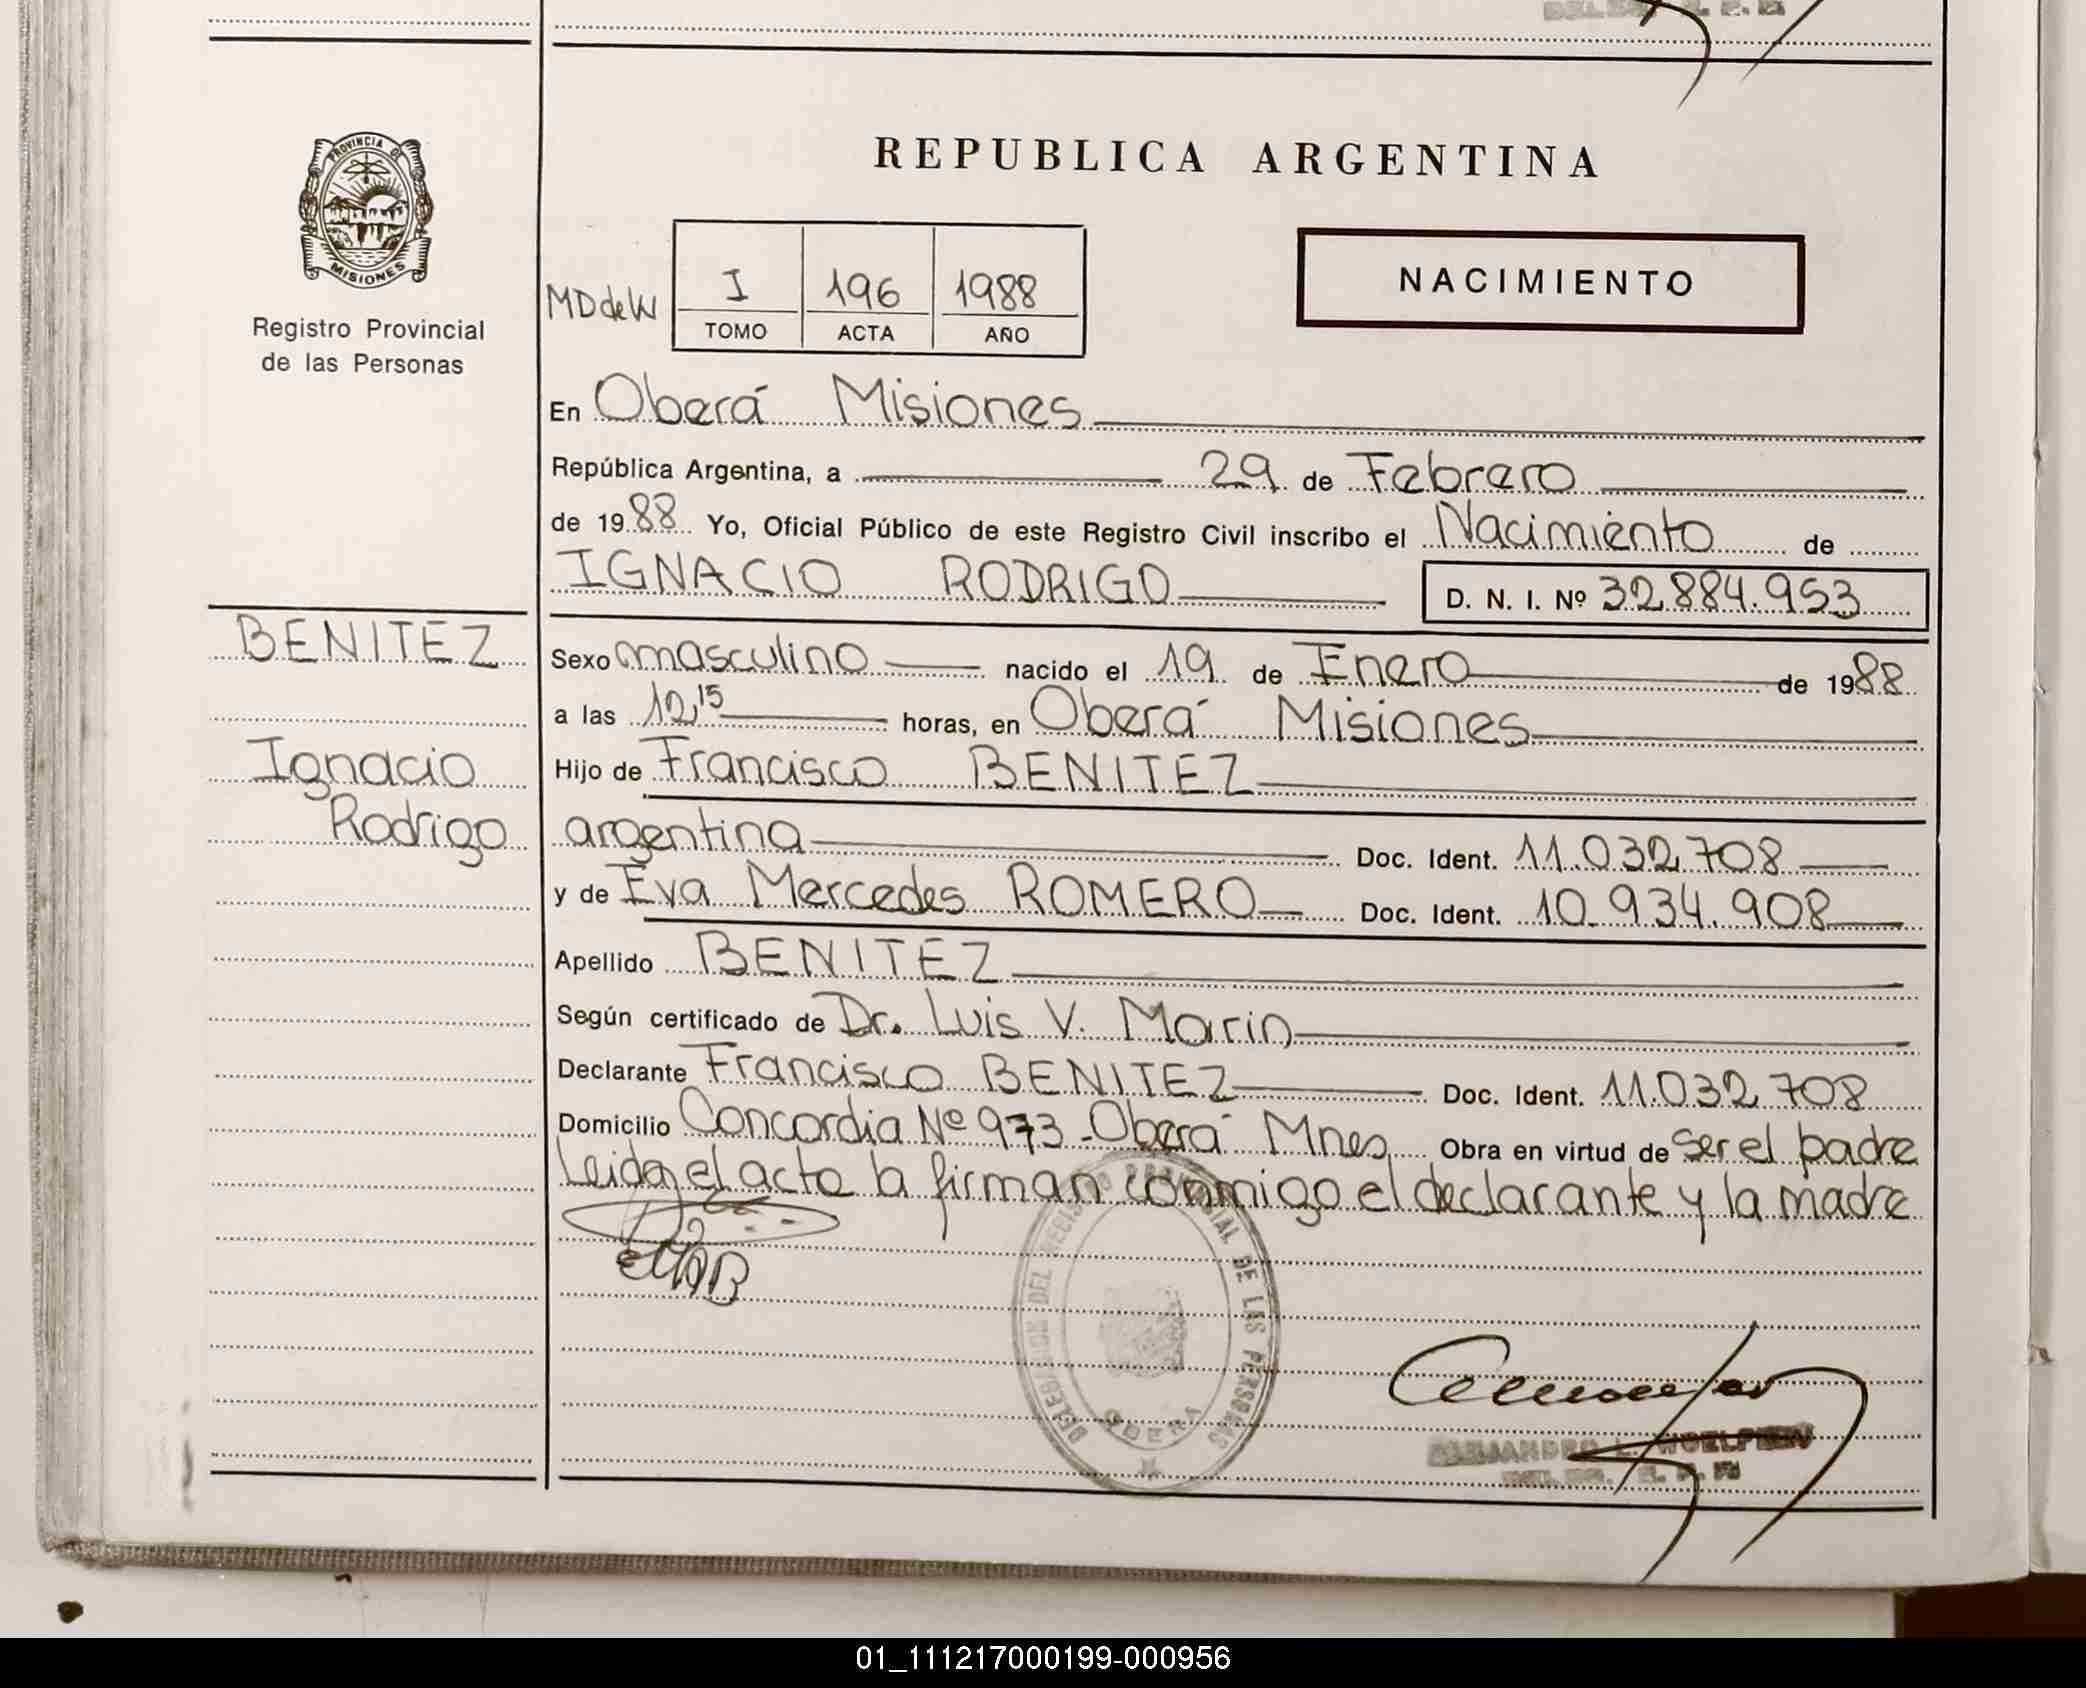 PROVINCIA DE
MISIONES
Registro Provincial
de las Personas
REPUBLICA ARGENTINA
MD de W
I 196 1988
TOMO ACTA AÑO
NACIMIENTO
En Oberá Misiones
República Argentina, a 29 de Febrero
de 1988 Yo, Oficial Público de este Registro Civil inscribo el Nacimiento de
IGNACIO RODRIGO D. N. I. Nº 32.884.953
BENITEZ
Ignacio
Rodrigo
Sexo masculino nacido el 19 de Enero de 1988
a las 12,15 horas, en Oberá Misiones
Hijo de Francisco BENITEZ
argentina Doc. Ident. 11.032.708
y de Eva Mercedes ROMERO Doc. Ident. 10.934.908
Apellido BENITEZ
Según certificado de Dr. Luis V. Marin
Declarante Francisco BENITEZ Doc. Ident. 11.032.708
Domicilio Concordia Nº 973 - Oberá Mnes Obra en virtud de ser el padre
Leida el acta la firman conmigo el declarante y la madre
DELEGACION DEL REGISTRO PROVINCIAL DE LAS PERSONAS
OBERA
ALEJANDRO L.
01_111217000199-000956